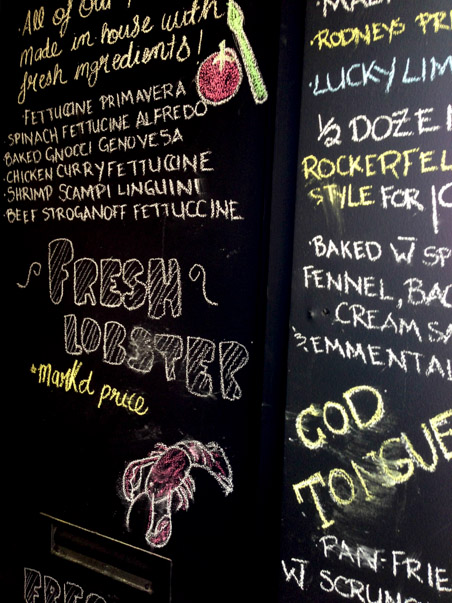 All of our
made in house with
fresh ingredients!
·FETTUCCINE PRIMAVERA
·SPINACH FETTUCINE ALFREDO
·BAKED GNOCCI GENOVESA
·CHICKEN CURRY FETTUCCINE
·SHRIMP SCAMPI LINGUINI
·BEEF STROGANOFF FETTUCCINE
FRESH
LOBSTER
·markd price
·RODNEYS PRI
·LUCKY LIM
1/2 DOZEN
ROCKERFEL
STYLE FOR
BAKED W̄ SP
FENNEL, BAC
CREAM SA
EMMENTAL
COD
TONGUE
PAN-FRIE
W̄ SCRUNC